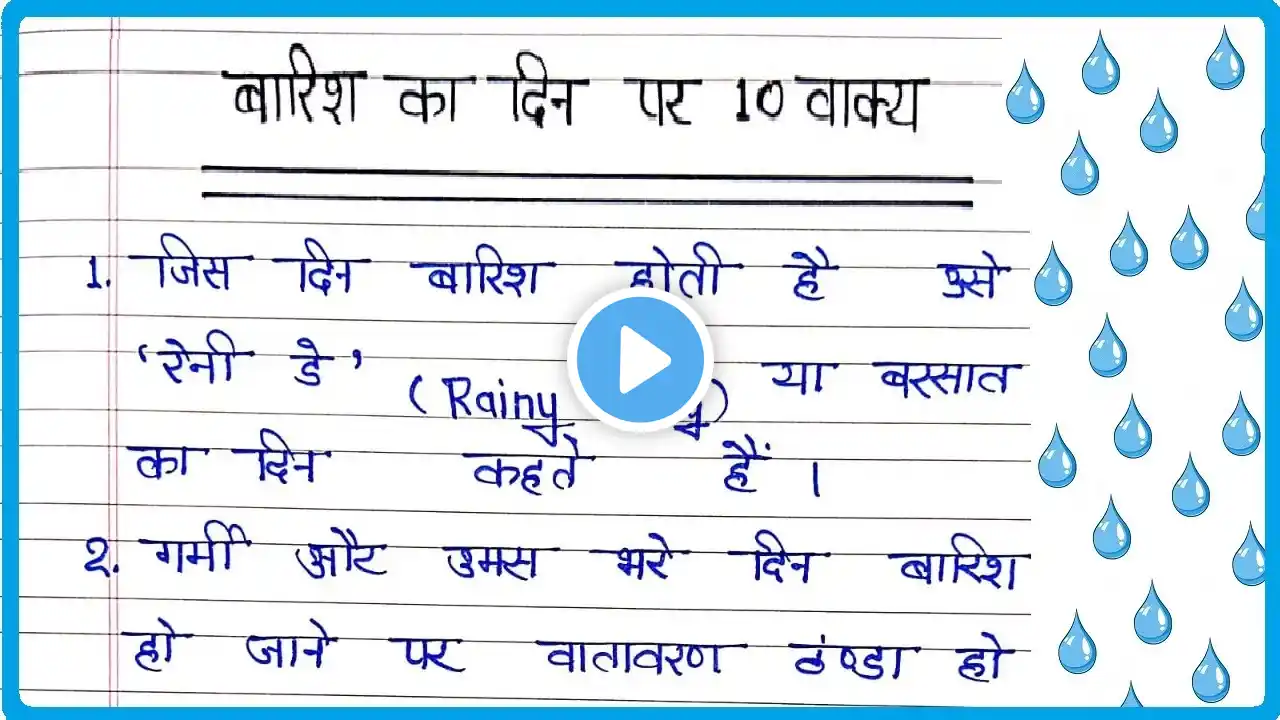 बारिश का दिन पर 10 वाक्य
1. जिस दिन बारिश होती है उसे
‘रेनी डे’ (Rainy या बरसात
का दिन कहते हैं ।
2. गर्मी और उमस भरे दिन बारिश
हो जाने पर वातावरण ठंण्डा हो